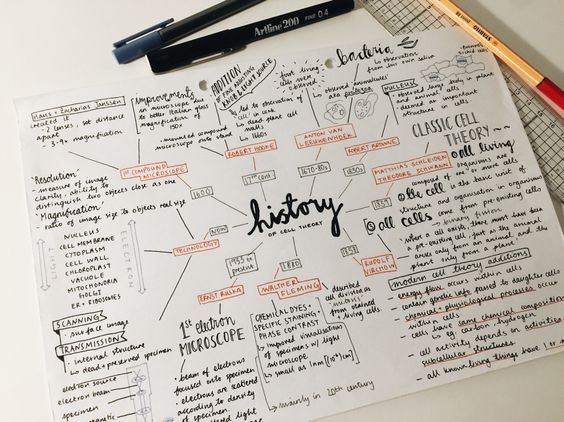 Artline 200
FINE 0.4
STABILO
Hans + Zacharias Janssen
created it
- 2 lenses, set distance
apart
- 3-9x magnification
Improvements
in microscope due
to better Italian lens
magnification of
150x
ADDITION
OF FINE ADJUSTING
KNOB & LIGHT SOURCE
led to observation of
'cell' in cork
dead plant cell
walls
1660s
mounted compound
microscope onto stand
first living
cells were
observed
bacteria
observation
from his own saliva
observed 'animalcules'
aka protozoa
NUCLEUS
observed large body in plant
and animal cells
deemed as important
to structure in cells
1st COMPOUND
MICROSCOPE
ROBERT HOOKE
ANTON VAN
LEEUWENHOEK
ROBERT BROWNE
MATTHIAS SCHLEIDEN
THEODORE SCHWANN
1600
17th cent
1670-80s
1830s
1839
CLASSIC CELL
THEORY
① all living
organisms are
composed of one or more cells
② the cell is the basic unit of
structure and organisation in organisms
③ all cells come from pre-existing cells
binary fission
"Where a cell exists, there must have been
a pre-existing cell, just as the animal
arises only from an animal and the
plant only from a plant."
• Resolution:
- measure of image
clarity - ability to
distinguish two objects close as one
• Magnification:
- ratio of image size to objects real size
LIGHT
NUCLEUS
CELL MEMBRANE
CYTOPLASM
CELL WALL
CHLOROPLAST
VACUOLE
MITOCHONDRIA
GOLGI
ER + RIBOSOMES
ELECTRON
TECHNOLOGY
NOW
history
OF CELL THEORY
1933 to
present
1880
1858
ERNST RUSKA
WALTHER
FLEMING
RUDOLF
VIRCHOW
described
cell division as
'mitosis'
from stained
living cells
SCANNING
• surface image
TRANSMISSION
• internal structure
↳ dead + preserved specimen
electron source
electron beam
specimen
1st electron
MICROSCOPE
• beam of electrons
focused onto specimen
• electrons are scattered
according to density
of specimen
CHEMICAL DYES
SPECIFIC STAINING
PHASE CONTRAST
↳ improved visualisation
of specimens w/ light
microscope
↳ mainly in 20th century
modern cell theory additions
- energy flow occurs within cells
- contain genetic info passed to daughter cells
- chemical + physiological processes occur
within cells
- cells have same chemical composition
↳ eg carbon hydrogen
- cell activity depends on activities
subcellular structures
- all known living things have 1 or